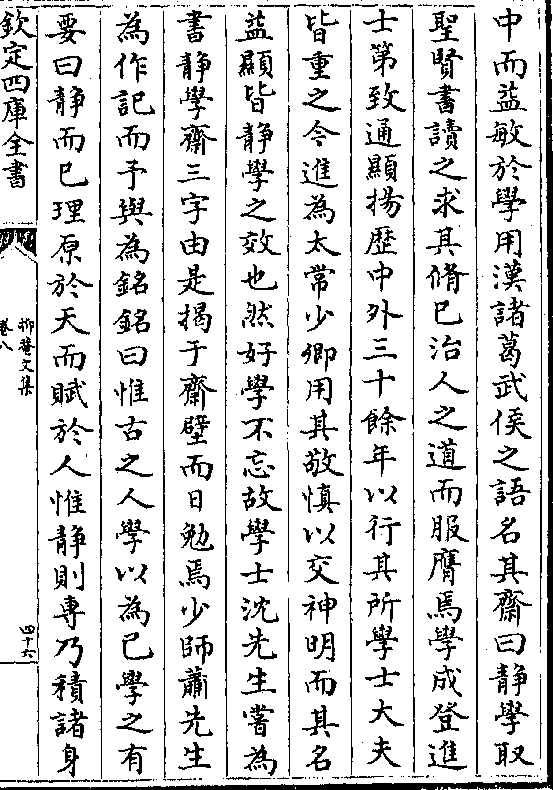 中而益敏於學用漢諸葛武侯之語名其齋曰靜學取
聖賢書讀之求其脩已治人之道而服膺焉學成登進
士第致通顯揚歷中外三十餘年以行其所學士大夫
皆重之今進為太常少卿用其敬慎以交神明而其名
益顯皆靜學之效也然好學不忘故學士沈先生嘗為
書靜學齋三字由是揭于齋壁而日勉焉少師蕭先生
為作記而予與為銘銘曰惟古之人學以為已學之有
要曰靜而已理原於天而賦於人惟靜則專乃積諸身
欽定四庫全書
抑菴文集
卷八
四十六